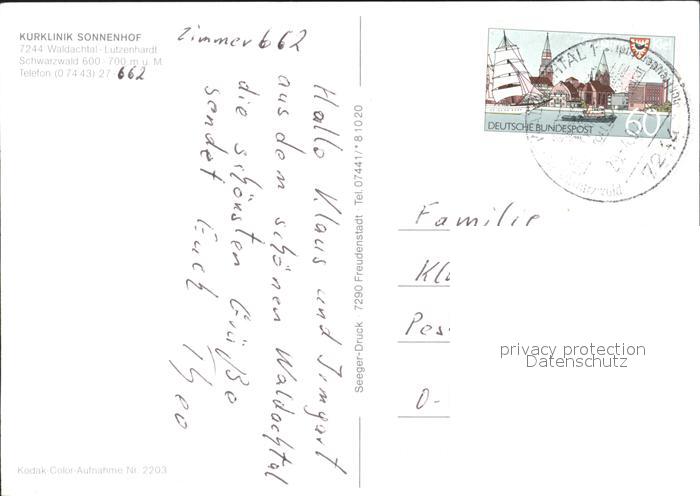 KURKLINIK SONNENHOF
7244 Waldachtal-Lützenhardt
Schwarzwald 600-700 m ü. M.
Telefon (07443) 27-662
Zimmer 662
Hallo Klaus und Irmgart
aus dem schönen Waldachtal
die schönsten Grüße
sendet Euch
Kodak-Color-Aufnahme Nr. 2203
Seeger-Druck 7290 Freudenstadt Tel. 07441/*81020
DEUTSCHE BUNDESPOST 60
WALDACHTAL 1
7244
Familie
Kl
Pes
O-
privacy protection
Datenschutz